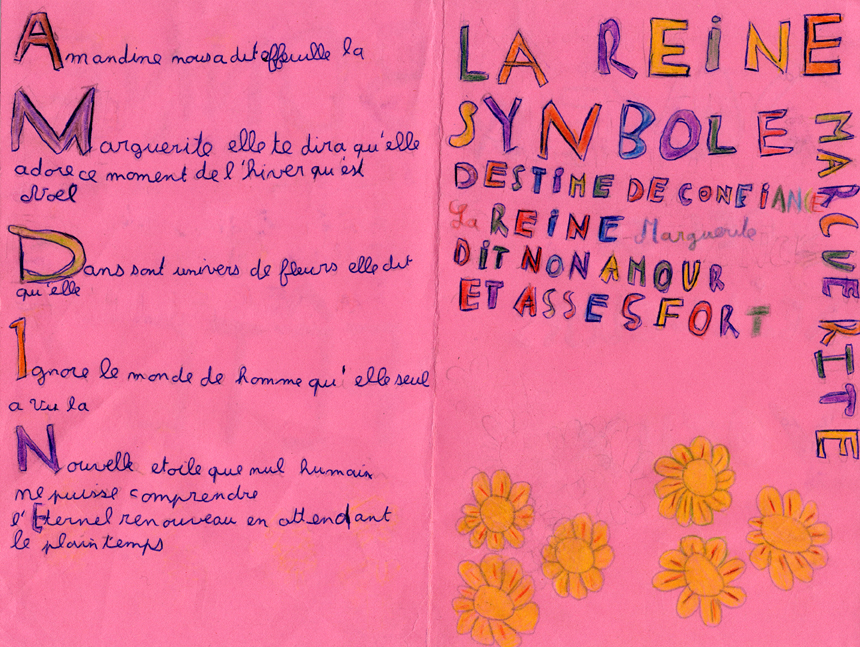 Amandine nous a dit effeuille la
Marguerite elle te dira qu'elle
adore ce moment de l'hiver qu'est
Noel
Dans sont univers de fleurs elle dit
qu'elle
Ignore le monde de homme qu'elle seul
a vu la
Nouvelle etoile que nul humain
ne puisse comprendre
l'Eternel renouveau en attendant
le plaintemps
LA REINE
SYNBOLE
DESTIME DE CONFIANCE
La REINE Marguerite
DIT NON AMOUR
ET ASSES FORT
MARGUERITE